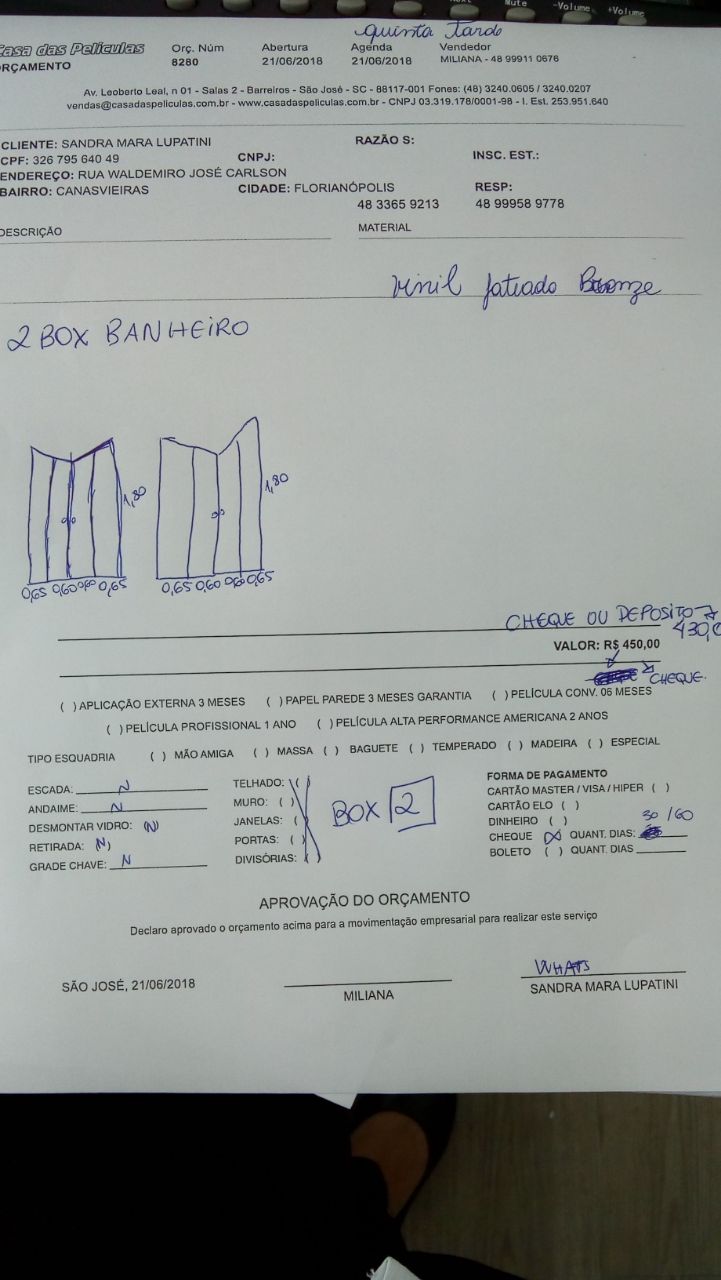 Mute -Volume +Volume
quinta Tarde
Casa das Películas
ORÇAMENTO
Orç. Núm Abertura Agenda Vendedor
8280 21/06/2018 21/06/2018 MILIANA - 48 99911 0676
Av. Leoberto Leal, n 01 - Salas 2 - Barreiros - São José - SC - 88117-001 Fones: (48) 3240.0605 / 3240.0207
vendas@casadaspeliculas.com.br - www.casadaspeliculas.com.br - CNPJ 03.319.178/0001-98 - I. Est. 253.951.640
CLIENTE: SANDRA MARA LUPATINI RAZÃO S:
CPF: 326 795 640 49 CNPJ: INSC. EST.:
ENDEREÇO: RUA WALDEMIRO JOSÉ CARLSON
BAIRRO: CANASVIEIRAS CIDADE: FLORIANÓPOLIS RESP:
48 3365 9213 48 99958 9778
DESCRIÇÃO MATERIAL
Vinil jateado Bronze
2 BOX BANHEIRO
1,80 1,80
0,65 0,60 0,60 0,65 0,65 0,60 0,60 0,65
CHEQUE OU DEPOSITO
430,0
VALOR: R$ 450,00
CHEQUE.
( ) APLICAÇÃO EXTERNA 3 MESES ( ) PAPEL PAREDE 3 MESES GARANTIA ( ) PELÍCULA CONV. 06 MESES
( ) PELÍCULA PROFISSIONAL 1 ANO ( ) PELÍCULA ALTA PERFORMANCE AMERICANA 2 ANOS
TIPO ESQUADRIA ( ) MÃO AMIGA ( ) MASSA ( ) BAGUETE ( ) TEMPERADO ( ) MADEIRA ( ) ESPECIAL
ESCADA: N
ANDAIME: N
DESMONTAR VIDRO: (N)
RETIRADA: (N)
GRADE CHAVE: N
TELHADO: ( )
MURO: ( )
JANELAS: ( )
PORTAS: ( )
DIVISÓRIAS: ( )
BOX 2
FORMA DE PAGAMENTO
CARTÃO MASTER / VISA / HIPER ( )
CARTÃO ELO ( )
DINHEIRO ( ) 30 /60
CHEQUE (X) QUANT. DIAS:
BOLETO ( ) QUANT. DIAS
APROVAÇÃO DO ORÇAMENTO
Declaro aprovado o orçamento acima para a movimentação empresarial para realizar este serviço
WHATS
SÃO JOSÉ, 21/06/2018 MILIANA SANDRA MARA LUPATINI